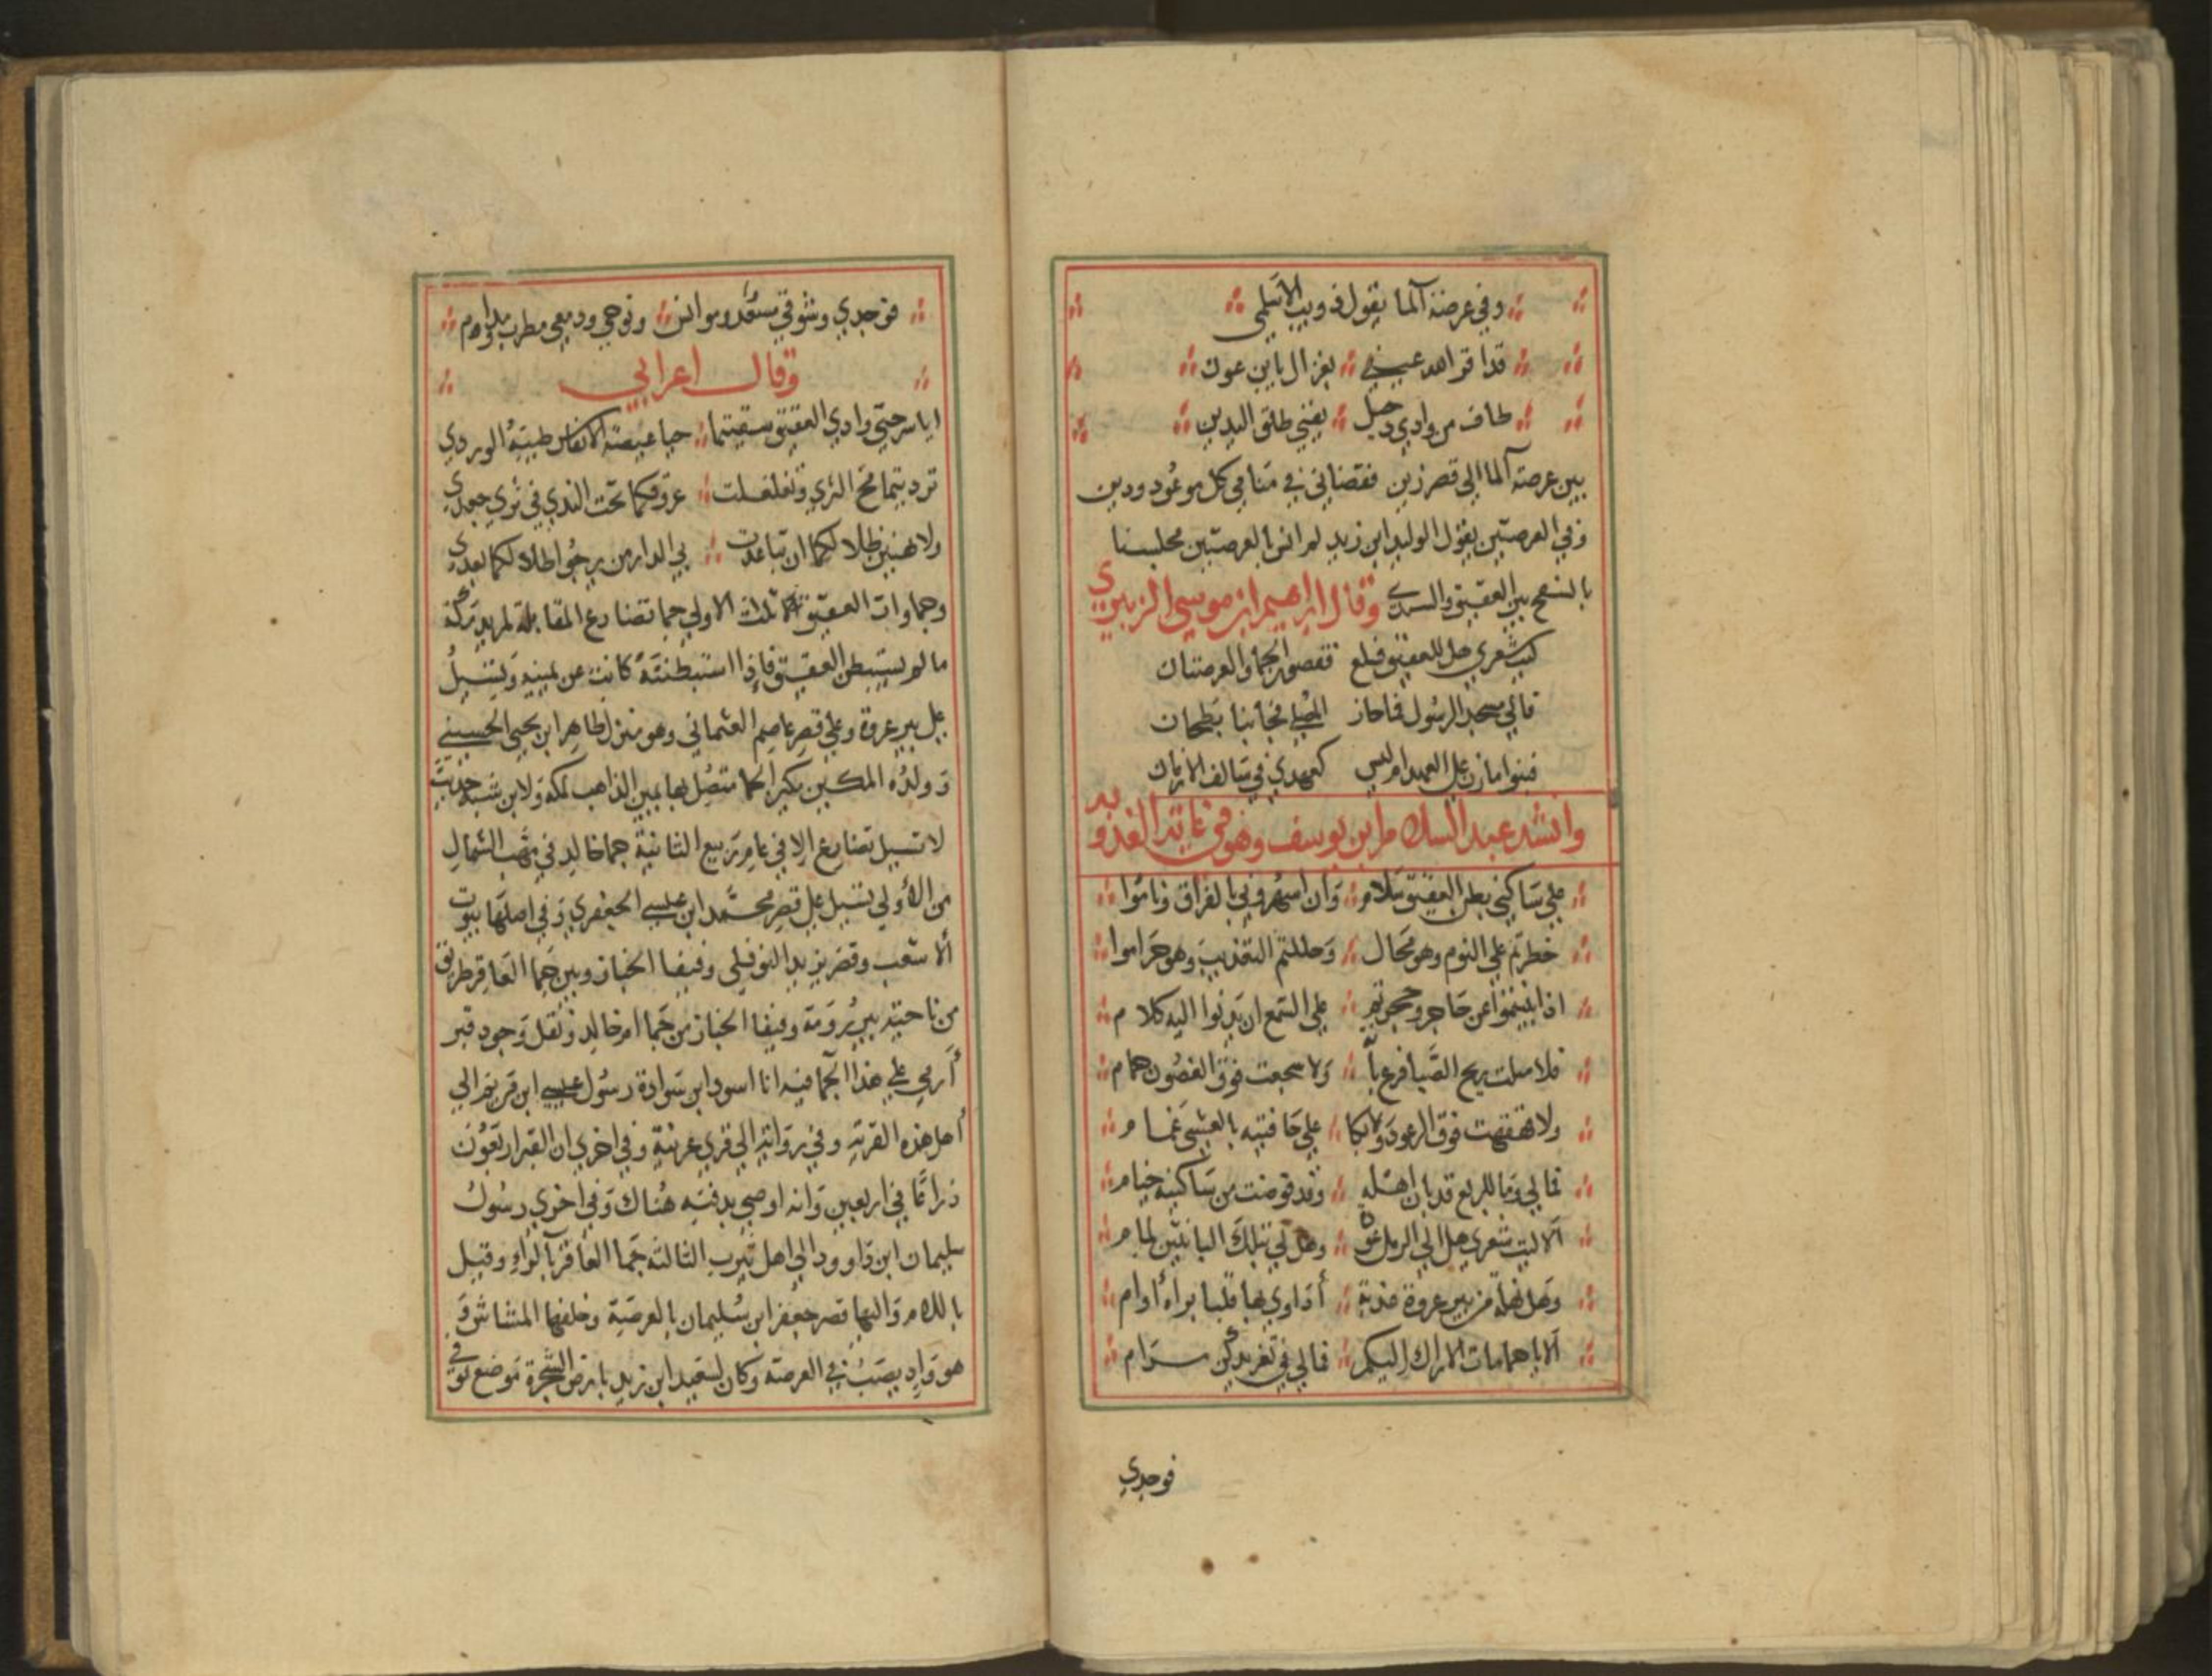 وفي عرضة آلما يقول ذويب الاتيلمي
قد اقر اهد عيني بغزال يابن عون
طاف من وادي دجيل بفني طلق اليدين
بين عرصة آلما الي قصر زين فقضاني في منامي كل موعود ودين
وفي العرصتين يقول الوليد ابن زيد لم انس بالعرصتين مجلسنا
بالسفح بين العقيق والسدي وقال ابراهيم ابن موسي الزبيري
ليت شعري هل للعقيق فسلع فقصور الجما والعرصتان
فالي مسجد الرسول فماحاز المصلي فجانبا بطحان
فبنوا مازن علي العهد ام ليس كعهدي في سالف الازمان
وانشد عبد السلام ابن يوسف وهو في غايته
علي ساكني بطن العقيق سلام وان اسهروني بالفراق وناموا
خطرتم علي النوم وهو محال وحللتم التعذيب وهو حراموا
اذا بنتموا عن حاجر وحجرتم علي السمع ان يدنوا اليه كلام
فلا ميلت ريح الصبا فرع بأ ولا سجعت فوق الغصون حمام
ولا قهقهت فوق الرعود ولا بكا علي حافتيه بالعشي غمام
فمالي وما للربع قد بان اهله وقد قوضت من ساكنيه خيام
الا ليت شعري هل الي الرمل عود وهل لي بتلك البانتين لمام
وهل نهلة من بير عروة عذبة أداوي بها قلبا براه أوام
ألا يا حمامات الاراك اليكم فمالي في تغريدكن مرام
فوجدي
فوجدي وشوقي مسعد وموانس ونوحي ودمعي مطرب ومدام
وقال اعرابي
ايا سرحتي وادي العقيق سقيتما حيا غيضة الانفاس طيبة الوردي
ترديتما مح الثري وتغلغلت عروقكما تحت الندي في ثري جعدي
ولا تهنين ظلالكما ان تباعدت بي الدار من يرجوا ظلالكما بعدي
وجماوات العقيق ثلاث الاولي جما تضارع المقابلة لمريد مكة
مالم يستبطن العقيق فاذا استبطنته كانت عن يمينه وتسيل
علي بير عروة وعلي قصر عاصم العثماني وهو منزل طاهر ابن يحيي الحسيني
وولده المكبين بكبر الجما متصل بها يمين الذاهب لمكة ولابن شبة حديث
لا تسيل تضارع الا في عام ربيع الثانية جما خالد في مهب الشمال
من الاولي تسيل علي قصر محمد ابن عيسي الجعفري وفي اصلها بيوت
ألاشعب وقصر يزيد النوفلي وفيفا الخبار وبين جما العاقر طريق
من ناحية بير رومة وفيفا الخبار من جما ام خالد ونقل وجود قبر
أرمي علي هذا الجما فيه انا اسود ابن سوادة رسول عيسي ابن مريم الي
أهل هذه القرية وفي رواية الي قري عرينة وفي اخري ان القبر اربعون
ذراعا في اربعين وانه اوصي بدفنه هناك وفي اخري رسول
سليمان ابن داوود الي اهل يثرب الثالثة جما العاقر بالراء وقيل
باللام واليها قصر جعفر ابن سليمان بالعرصة وخلفها المشاش و
هو واد يصب في العرصة وكان لسعيد ابن زيد بارض الشجرة موضع توفي